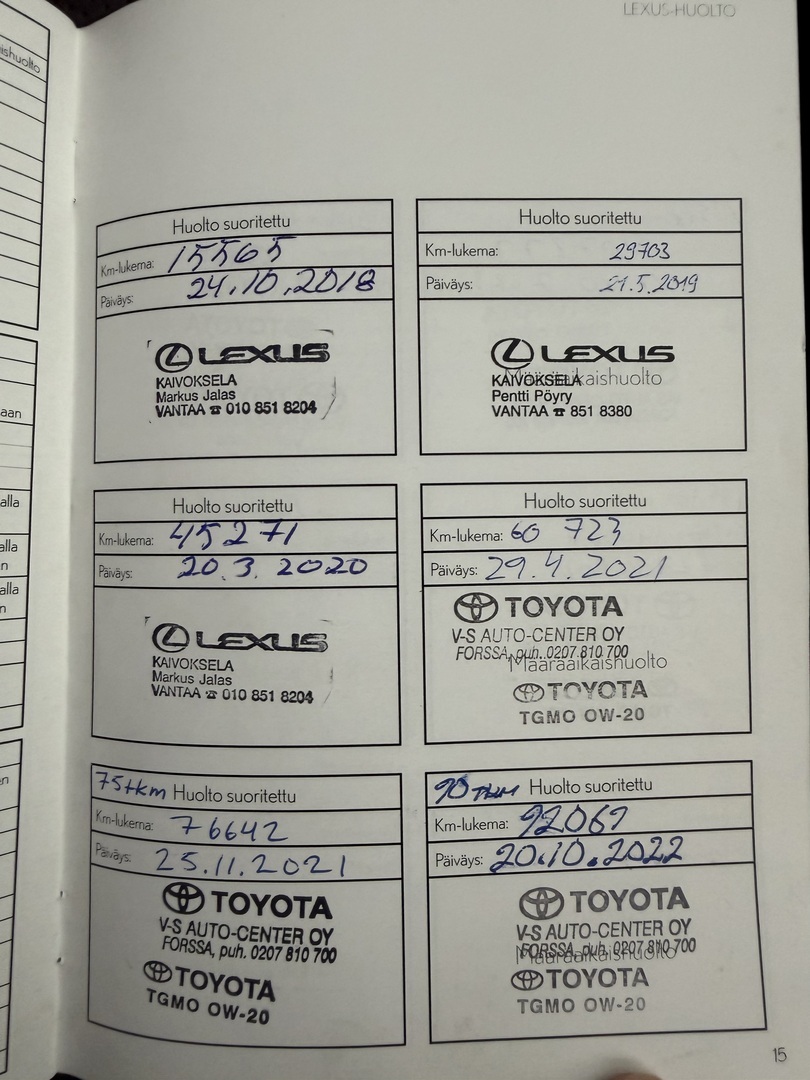 LEXUS-HUOLTO
ishuolto
aan
alla
alla
n
alla
n
en
n
Huolto suoritettu
Km-lukema: 15565
Päiväys: 24.10.2018
LEXUS
KAIVOKSELA
Markus Jalas
VANTAA ☎ 010 851 8204
Huolto suoritettu
Km-lukema: 29703
Päiväys: 21.5.2019
LEXUS
KAIVOKSELA
Määräaikaishuolto
Pentti Pöyry
VANTAA ☎ 851 8380
Huolto suoritettu
Km-lukema: 45271
Päiväys: 20.3.2020
LEXUS
KAIVOKSELA
Markus Jalas
VANTAA ☎ 010 851 8204
Huolto suoritettu
Km-lukema: 60 723
Päiväys: 29.4.2021
TOYOTA
V-S AUTO-CENTER OY
FORSSA, puh. 0207 810 700
Määräaikaishuolto
TOYOTA
TGMO 0W-20
75tkm Huolto suoritettu
Km-lukema: 76642
Päiväys: 25.11.2021
TOYOTA
V-S AUTO-CENTER OY
FORSSA, puh. 0207 810 700
TOYOTA
TGMO 0W-20
90 tkm Huolto suoritettu
Km-lukema: 92069
Päiväys: 20.10.2022
TOYOTA
V-S AUTO-CENTER OY
FORSSA, puh. 0207 810 700
Määräaikaishuolto
TOYOTA
TGMO 0W-20
15